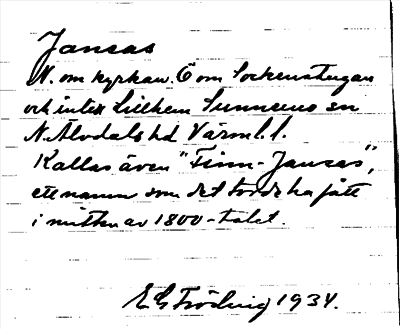 Jansas
N. om kyrkan. Ö om Sockenstugan
och intill Lillhem Sunnemo sn
N. Älvdals hd Värml. l.
Kallas även "Finn-Jansas",
ett namn som det torde ha fått
i mitten av 1800-talet.
E G Fröding 1934.